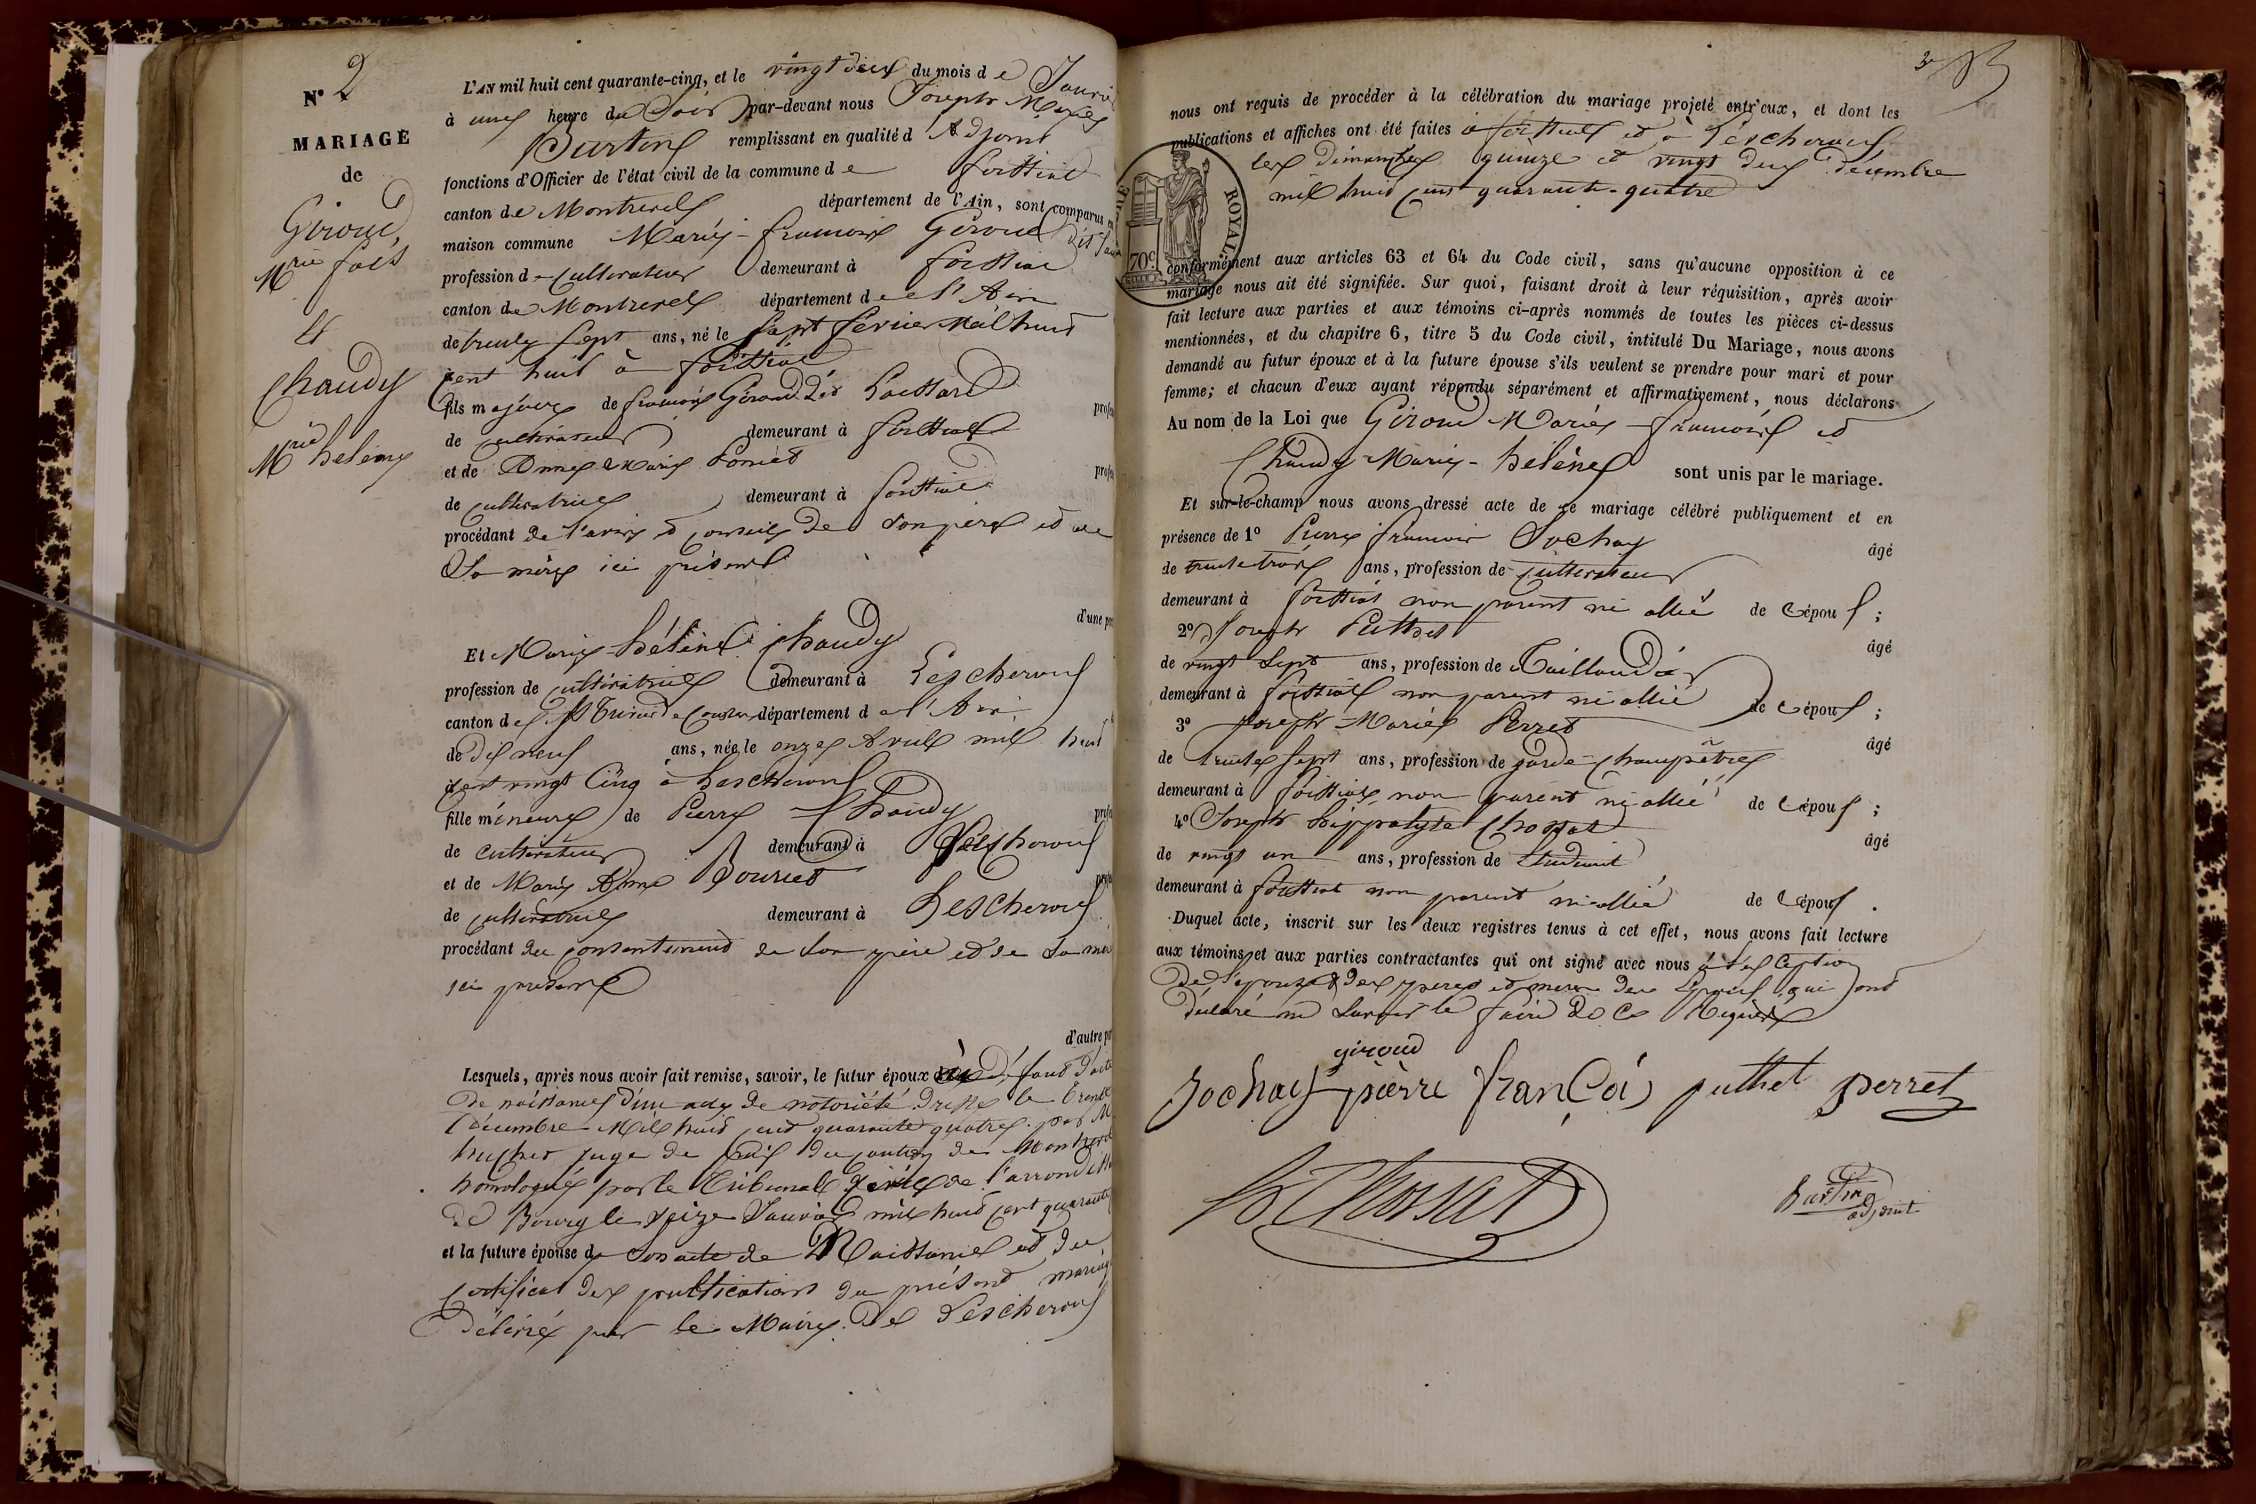 N° 2
MARIAGE
de
Giroud,
Mrie fois
et
Chaudy
Mrie helène
L'AN mil huit cent quarante-cinq, et le vingt deux du mois de Janvier
à une heure du Soir par-devant nous Joseph Marie
Burtin remplissant en qualité d'Adjoint
fonctions d'Officier de l'état civil de la commune de foissiat
canton de Montrevel département de l'Ain, sont comparus en
maison commune Marie-francois Giroud dit
profession de Cultivateur demeurant à foissiat
canton de Montrevel département de l'Ain
de trente Sept ans, né le Sept fevrier Mil huit
cent huit à foissiat
fils majeur de francois Giroud dit
de cultivateur demeurant à foissiat
et de Anne Marie
de cultivatrice demeurant à foissiat
procédant de l'avis et conseil de Son père et de
Sa mère ici présent
d'une
Et Marie Hélène Chaudy
profession de cultivatrice demeurant à Lescheroux
canton de St Trivier de Courtes département de l'Ain
de dix neuf ans, née le onze Avril mil huit
cent vingt Cinq à Lescheroux
fille mineure de Pierre Chaudy
de cultivateur demeurant à Lescheroux
et de Marie Anne
de cultivatrice demeurant à Lescheroux
procédant du consentement de Son père et de Sa mère
ici présent
d'autre
Lesquels, après nous avoir fait remise, savoir, le futur époux à défaut d'acte
de naissance d'un acte de notoriété dressé le trente
décembre Mil huit cent quarante quatre par M
juge de paix du canton de Montrevel
homologué par le tribunal civil de l'arrondiss
de Bourg le seize Janvier mil huit cent quarante
et la future épouse de son acte de Naissance et du
certificat des publications du présent mariage
délivré par le Maire de Lescheroux
3
nous ont requis de procéder à la célébration du mariage projeté entr'eux, et dont les
publications et affiches ont été faites à foissiat et à Lescheroux
les dimanches quinze et vingt deux décembre
mil huit cent quarante-quatre
ROYAL
70c
conformément aux articles 63 et 64 du Code civil, sans qu'aucune opposition à ce
mariage nous ait été signifiée. Sur quoi, faisant droit à leur réquisition, après avoir
fait lecture aux parties et aux témoins ci-après nommés de toutes les pièces ci-dessus
mentionnées, et du chapitre 6, titre 5 du Code civil, intitulé Du Mariage, nous avons
demandé au futur époux et à la future épouse s'ils veulent se prendre pour mari et pour
femme; et chacun d'eux ayant répondu séparément et affirmativement, nous déclarons
Au nom de la Loi que Giroud Marie-francois et
Chaudy Marie-hélène sont unis par le mariage.
Et sur-le-champ nous avons dressé acte de ce mariage célébré publiquement et en
présence de 1° Pierre francois Sochay âgé
de trente trois ans, profession de cultivateur
demeurant à foissiat non parent ni allié de l'époux;
2° Joseph Puthet âgé
de vingt Sept ans, profession de Taillandier
demeurant à foissiat non parent ni allié de l'époux;
3° Joseph-Marie Perret âgé
de trente sept ans, profession de garde-champêtre
demeurant à foissiat non parent ni allié de l'époux;
4° Joseph hippolyte Chossat âgé
de vingt un ans, profession de Etudiant
demeurant à foissiat non parent ni allié de l'époux.
Duquel acte, inscrit sur les deux registres tenus à cet effet, nous avons fait lecture
aux témoins et aux parties contractantes qui ont signé avec nous à l'exception
de l'épouse des pères et mères des Epoux qui ont
déclaré ne Savoir le faire de ce Requis
giroud
Sochay pièrre françoi puthet perret
h Chossat
Burtin
adjoint